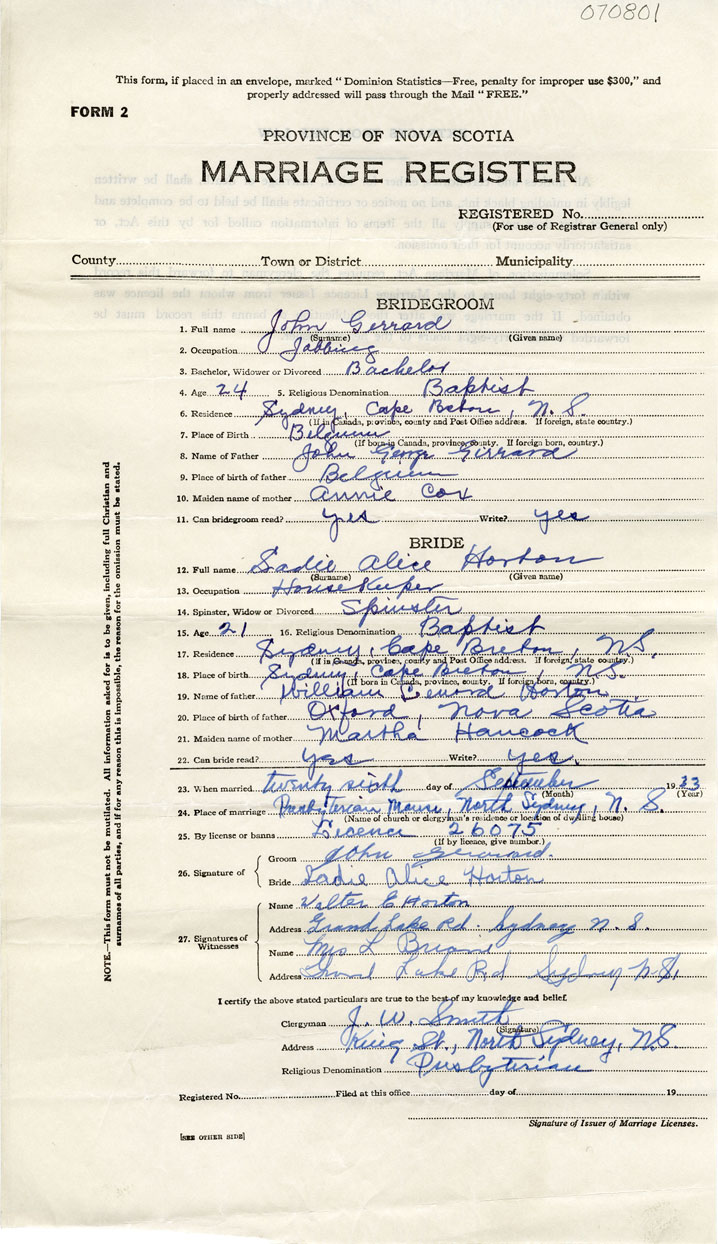 070801
This form, if placed in an envelope, marked "Dominion Statistics—Free, penalty for improper use $300," and
properly addressed will pass through the Mail "FREE."
FORM 2
PROVINCE OF NOVA SCOTIA
MARRIAGE REGISTER
REGISTERED No.
(For use of Registrar General only)
County Town or District Municipality
BRIDEGROOM
1. Full name John Gerrard
(Surname) (Given name)
2. Occupation Jobbing
3. Bachelor, Widower or Divorced Bachelor
4. Age 24 5. Religious Denomination Baptist
6. Residence Sydney, Cape Breton, N.S.
(If in Canada, province, county and Post Office address. If foreign, state country.)
7. Place of Birth Belgium
(If born in Canada, province, county. If foreign born, country.)
8. Name of Father John George Girrard
9. Place of birth of father Belgium
10. Maiden name of mother Annie Cox
11. Can bridegroom read? yes Write? yes
BRIDE
12. Full name Sadie Alice Horton
(Surname) (Given name)
13. Occupation Housekeeper
14. Spinster, Widow or Divorced Spinster
15. Age 21 16. Religious Denomination Baptist
17. Residence Sydney, Cape Breton, N.S.
(If in Canada, province, county and Post Office address. If foreign, state country.)
18. Place of birth Sydney, Cape Breton N.S.
(If born in Canada, province, county. If foreign born, country.)
19. Name of father William Horton
20. Place of birth of father Oxford, Nova Scotia
21. Maiden name of mother Martha Hancock
22. Can bride read? yes Write? yes.
23. When married twenty sixth day of September 1933
(Month) (Year)
24. Place of marriage Presbyterian Manse, North Sydney, N.S.
(Name of church or clergyman's residence or location of dwelling house)
25. By license or banns Licence 26075
(If by licence, give number.)
26. Signature of
Groom John Gerrard.
Bride Sadie Alice Horton
27. Signatures of Witnesses
Name Walter C Horton
Address Grand Lake Rd. Sydney N.S.
Name Mrs L
Address Grand Lake Rd Sydney N.S.
I certify the above stated particulars are true to the best of my knowledge and belief.
Clergyman J. W. Smith
(Signature)
Address King St., North Sydney, N.S.
Religious Denomination Presbyterian
Registered No. Filed at this office day of 19
Signature of Issuer of Marriage Licenses.
[SEE OTHER SIDE]
NOTE.—This form must not be mutilated. All information asked for is to be given, including full Christian and
surnames of all parties, and if for any reason this is impossible, the reason for the omission must be stated.